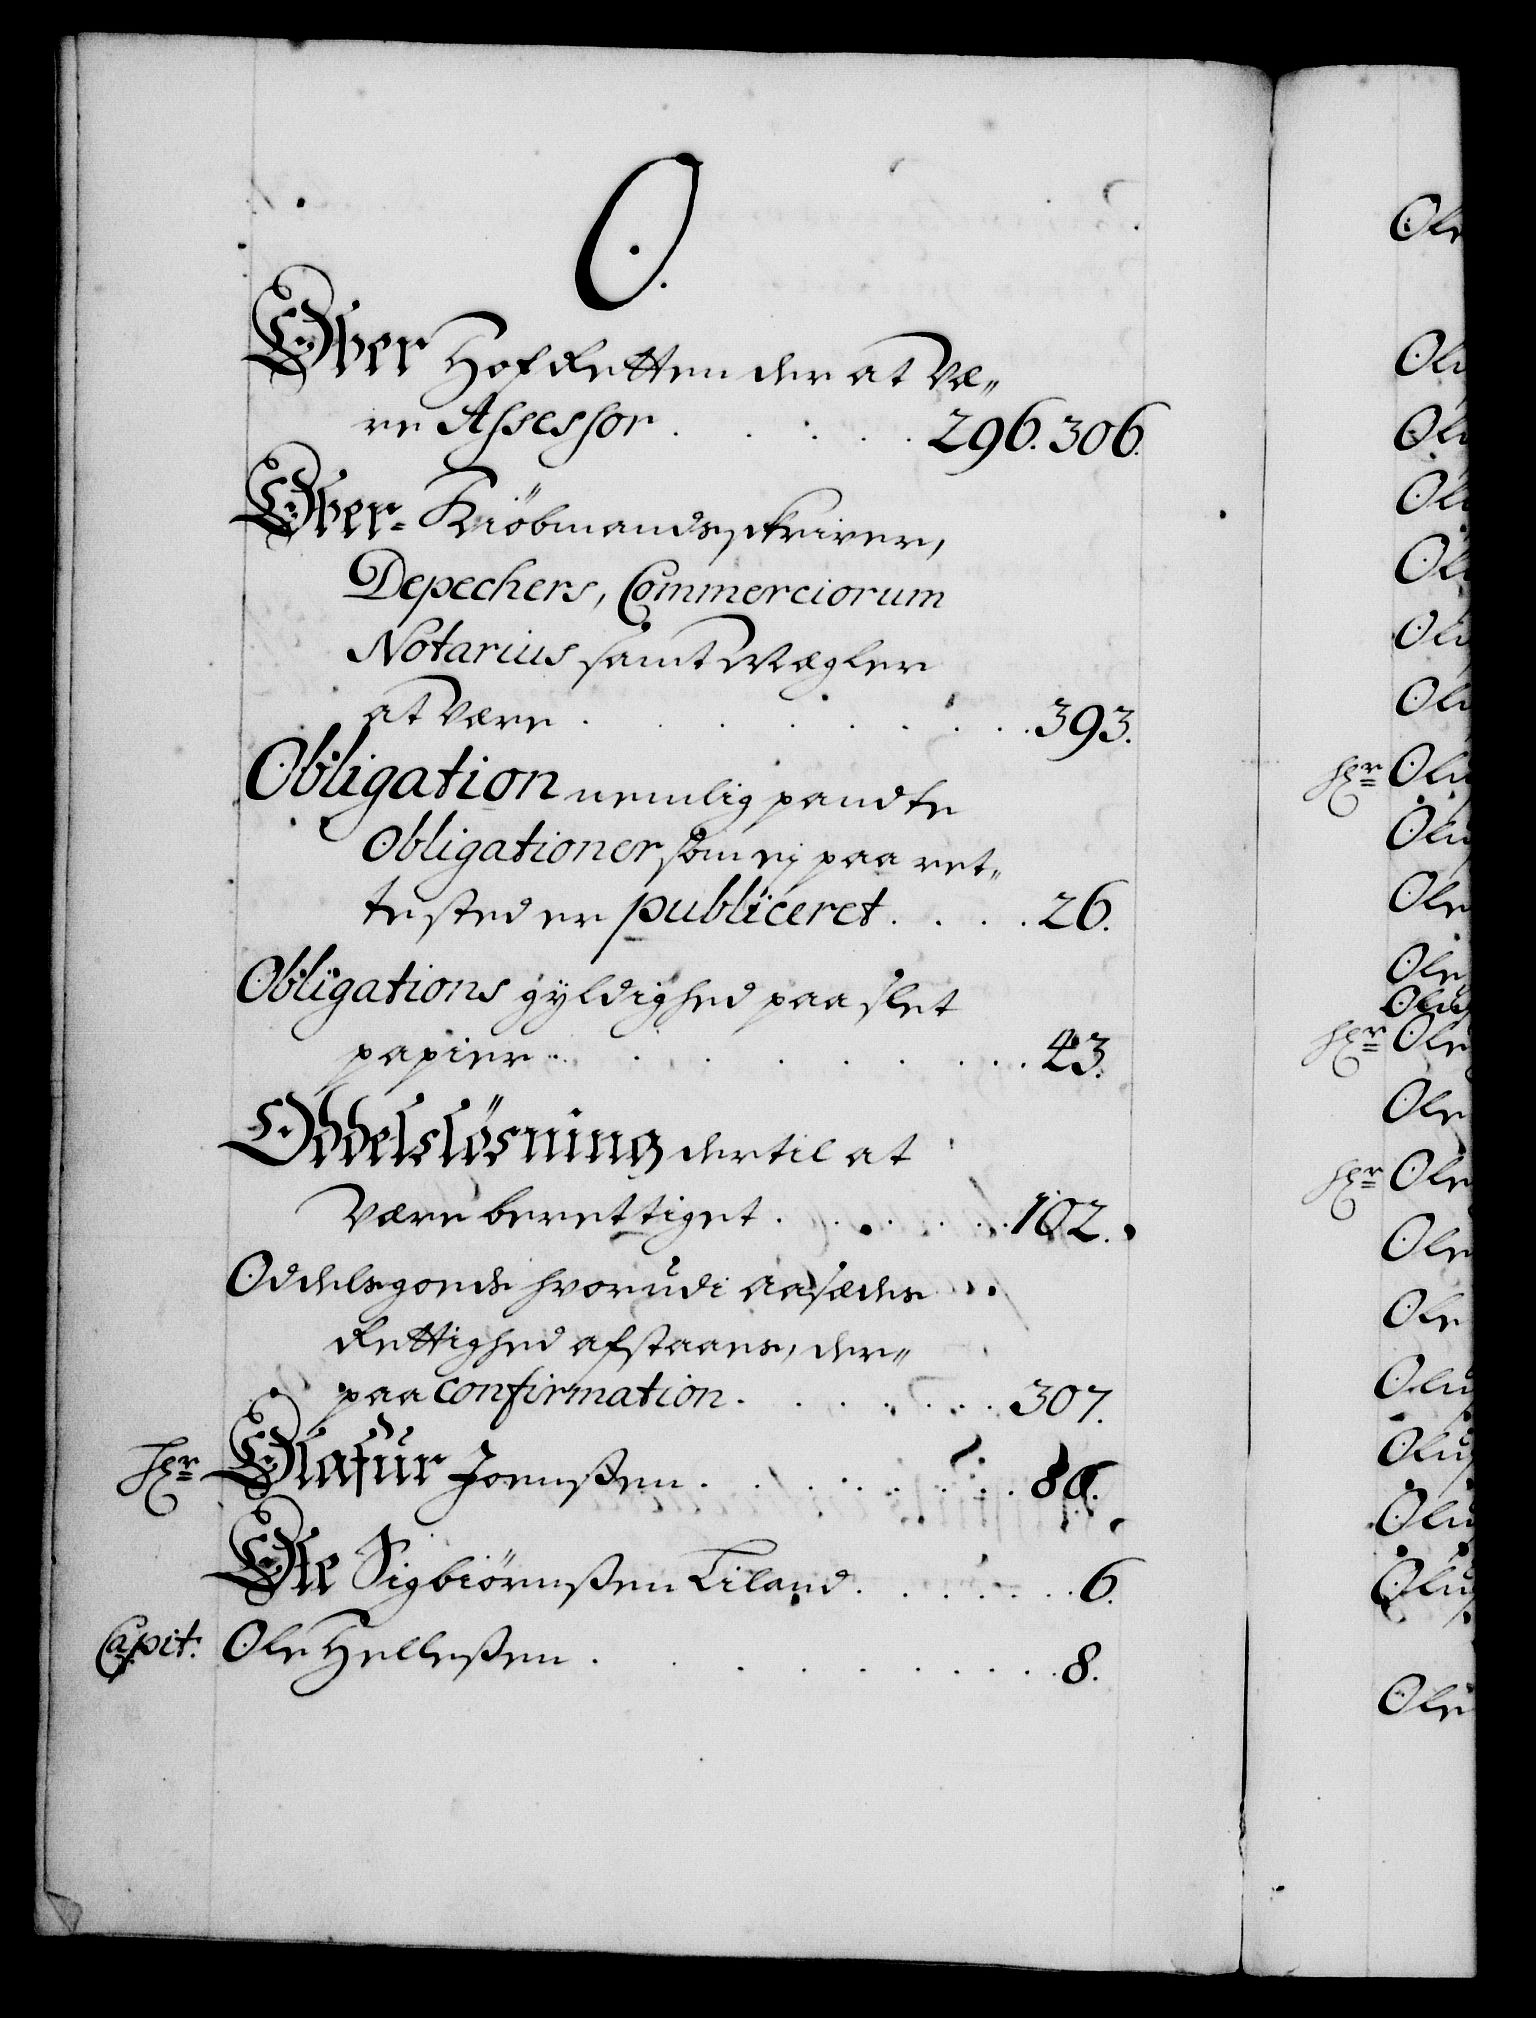 O.
Over HofRetten der at væ„
re Assessor . . . . . 296. 306.
Over- Kiöbmandsskriver,
Depechers, Commerciorum
Notarius samt Mægler
at være . . . . . . . 393.
Obligation nemlig pandte
Obligationer som ej paa ret„
te sted er publiceret . . . . 26.
Obligations gyldighed paa slet
papier . . . . . . . 43.
Oddelslösning dertil at
være berettiget . . . . . . 102.
Oddelsgoeds hvorudi Aasædes
Rettighed afstaaes, der„
paa confirmation . . . . . . 307.
Hr Olafur Joensßen . . . . . . 86.
Ole Sigbiörnßen Tiland . . . . . . 6.
Capit: Ole Helleßen . . . . . . . . 8.
Ole
Hr
Ole
Ole
Ole
Oluf
Hr Ole
Ole
Hr Ole
Ole
Ole
Oluf
Oluf
Ole